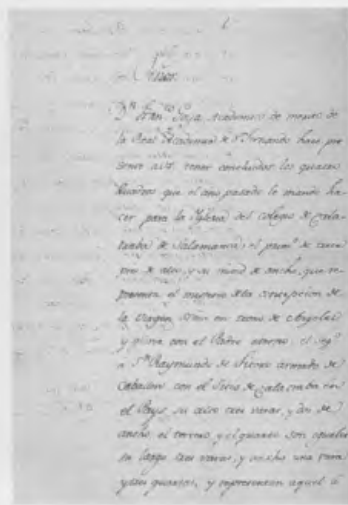 Señor
Dn. Fran.co Goya Academico de merito de
la Real Academia de Sn. Fernando hace pre
sente a V.A. tener concluidos los quatro
Quadros que el año pasado le mando ha-
cer para la Iglesia del colegio de Cala-
traba de Salamanca: el prim.o de
de alto, y su mitad de ancho, que re-
presenta el misterio de la concepcion de
la Virgen en trono de Angeles
y gloria con el Padre eterno: el seg.o
a Sn. Raymundo de Fitero armado de
Caballero con el de Calatraba en
el su alto tres varas, y dos de
ancho: el tercero, y el quarto son iguales
su largo tres varas, y ancho una vara
y tres quartas, y representan aquel a